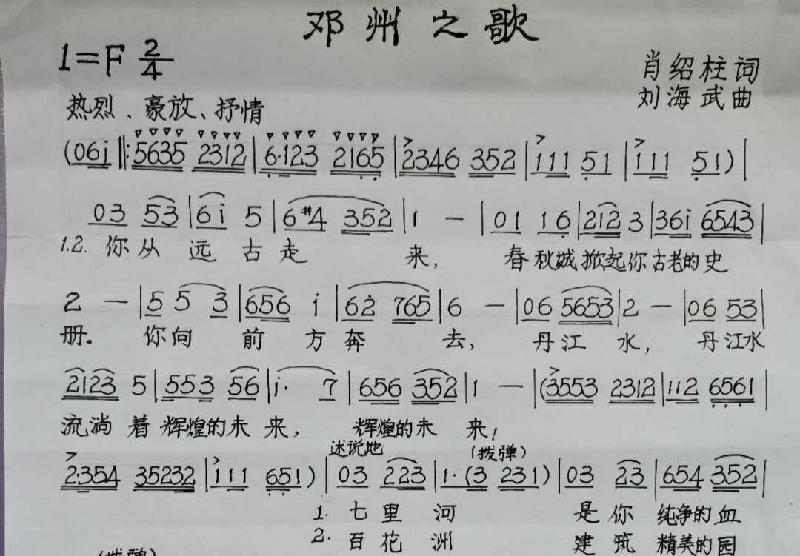 邓州之歌
1=F 2/4
肖绍柱 词
热烈、豪放、抒情
刘海武 曲
(06i ‖: 5635 2312 | 6·123 2165 | 2346 352 | i11 51 | i11 51) |
03 53 | 6i 5 | 6#4 352 | 1 — | 01 16 | 212 3 | 36i 6543 |
1.2. 你从 远 古 走 来, 春秋 掀起你古老的史
2 — | 5 5 3 | 656 i | 62 765 | 6 — | 06 5653 | 2 — | 06 53 |
册。 你向 前 方 奔 去, 丹江 水, 丹江水
2123 5 | 553 56 | i· 7 | 656 352 | 1 — | (3553 2312 | 112 6561 |
流淌 着 辉煌的未 来, 辉煌的未 来!
述说地 (拨弹)
2354 35232 | i11 651) | 03 223 | 1·(3 231) | 03 23 | 654 352 |
1. 七里 河 是你 纯净的血
2. 百花 洲 建筑 精美的园
(拨弹)